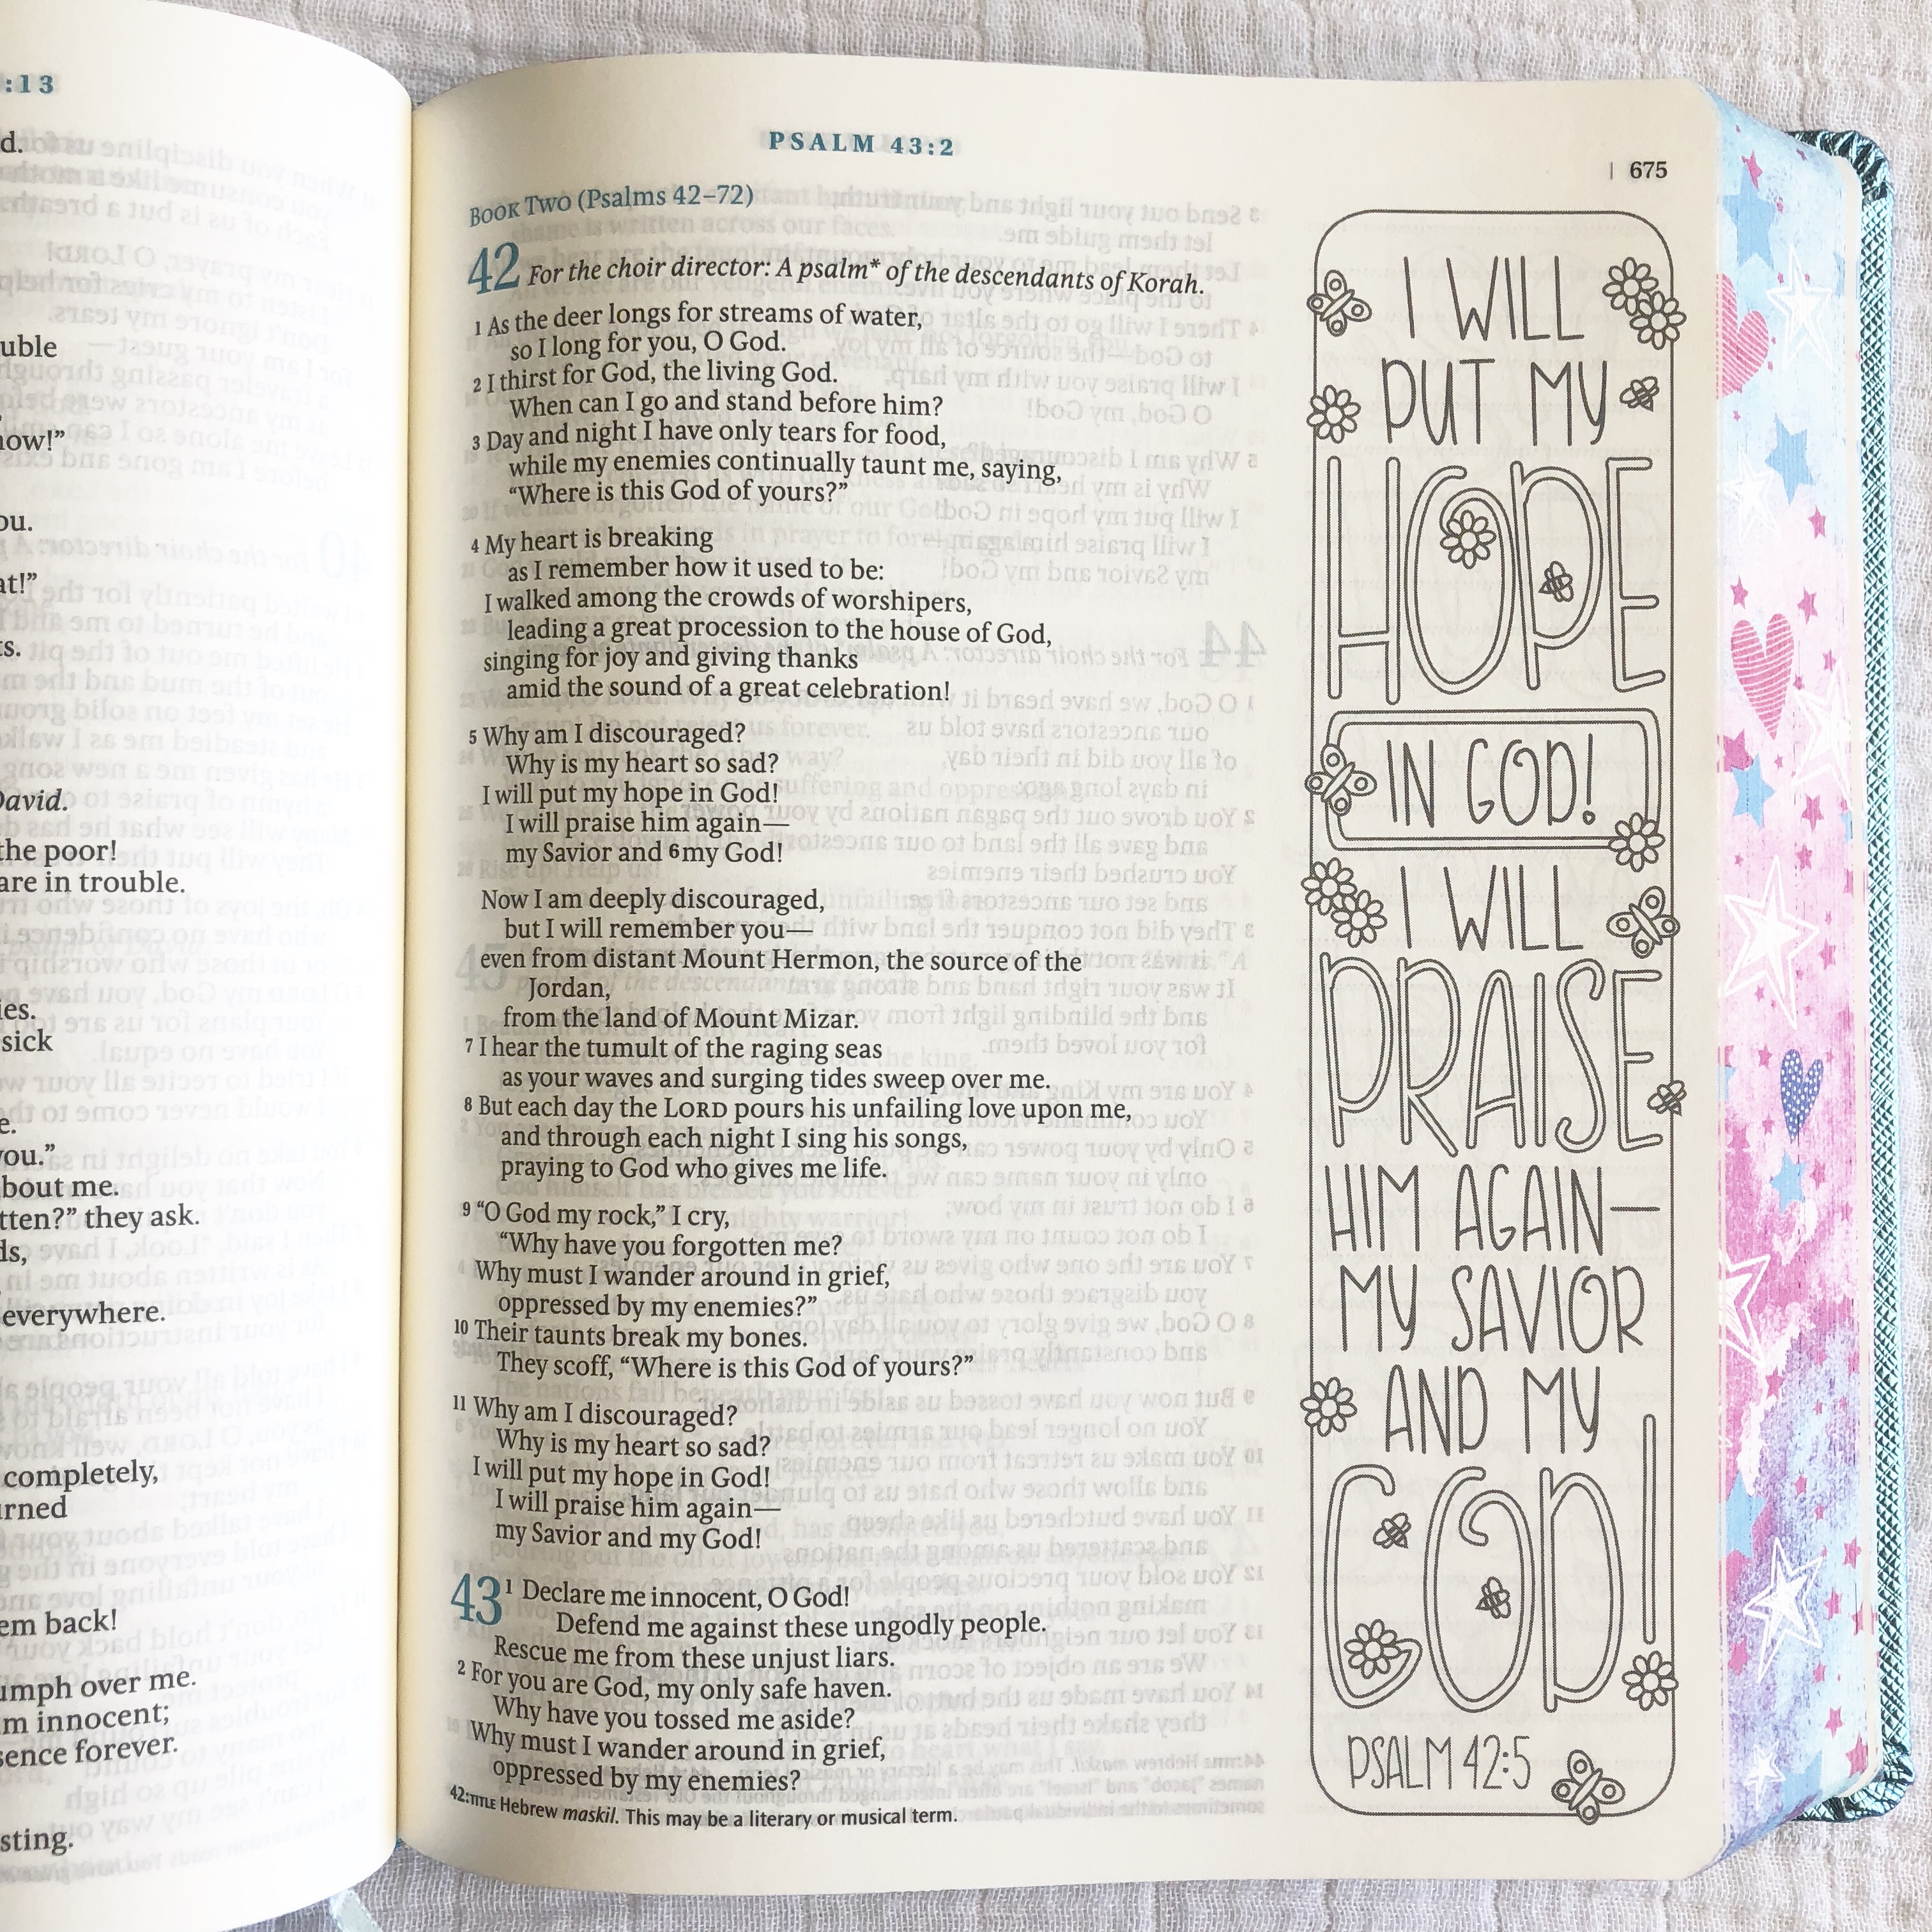 :13
d.
uble
now!”
ou.
at!”
ts.
David.
the poor!
are in trouble.
ies.
sick
e.
you.”
bout me.
tten?” they ask.
ds,
everywhere.
completely,
urned
em back!
umph over me.
m innocent;
sence forever.
sting.
PSALM 43:2
| 675
BOOK TWO (Psalms 42–72)
42 For the choir director: A psalm* of the descendants of Korah.
1 As the deer longs for streams of water,
so I long for you, O God.
2 I thirst for God, the living God.
When can I go and stand before him?
3 Day and night I have only tears for food,
while my enemies continually taunt me, saying,
“Where is this God of yours?”
4 My heart is breaking
as I remember how it used to be:
I walked among the crowds of worshipers,
leading a great procession to the house of God,
singing for joy and giving thanks
amid the sound of a great celebration!
5 Why am I discouraged?
Why is my heart so sad?
I will put my hope in God!
I will praise him again—
my Savior and 6 my God!
Now I am deeply discouraged,
but I will remember you—
even from distant Mount Hermon, the source of the
Jordan,
from the land of Mount Mizar.
7 I hear the tumult of the raging seas
as your waves and surging tides sweep over me.
8 But each day the LORD pours his unfailing love upon me,
and through each night I sing his songs,
praying to God who gives me life.
9 “O God my rock,” I cry,
“Why have you forgotten me?
Why must I wander around in grief,
oppressed by my enemies?”
10 Their taunts break my bones.
They scoff, “Where is this God of yours?”
11 Why am I discouraged?
Why is my heart so sad?
I will put my hope in God!
I will praise him again—
my Savior and my God!
43 1 Declare me innocent, O God!
Defend me against these ungodly people.
Rescue me from these unjust liars.
2 For you are God, my only safe haven.
Why have you tossed me aside?
Why must I wander around in grief,
oppressed by my enemies?
42:TITLE Hebrew maskil. This may be a literary or musical term.
I WILL
PUT MY
HOPE
IN GOD!
I WILL
PRAISE
HIM AGAIN—
MY SAVIOR
AND MY
GOD!
PSALM 42:5